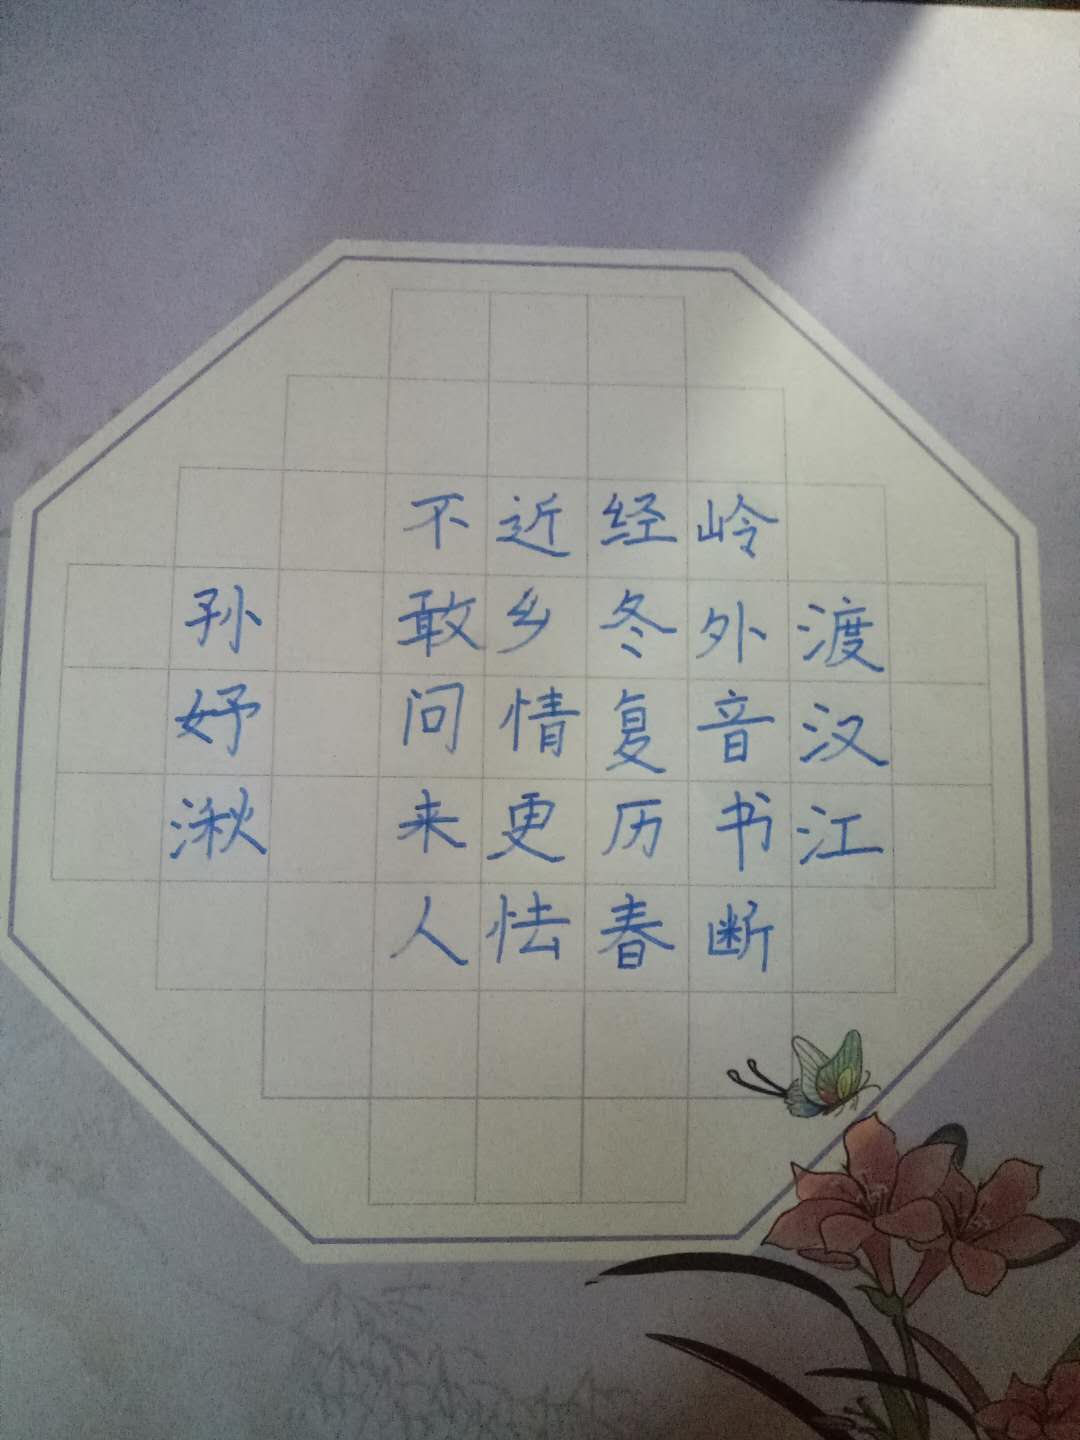 渡汉江
岭外音书断
经冬复历春
近乡情更怯
不敢问来人
孙妤湫